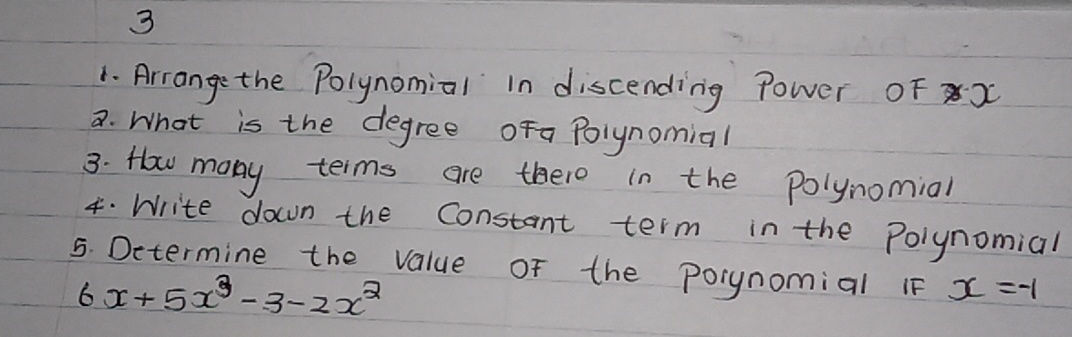 3
1. Arrange the Polynomial in discending Power OF x
2. What is the degree OF a Polynomial
3. How many terms are there in the polynomial
4. Write down the Constant term in the Polynomial
5. Determine the value OF the polynomial IF x = -1
6x + 5x³ - 3 - 2x²